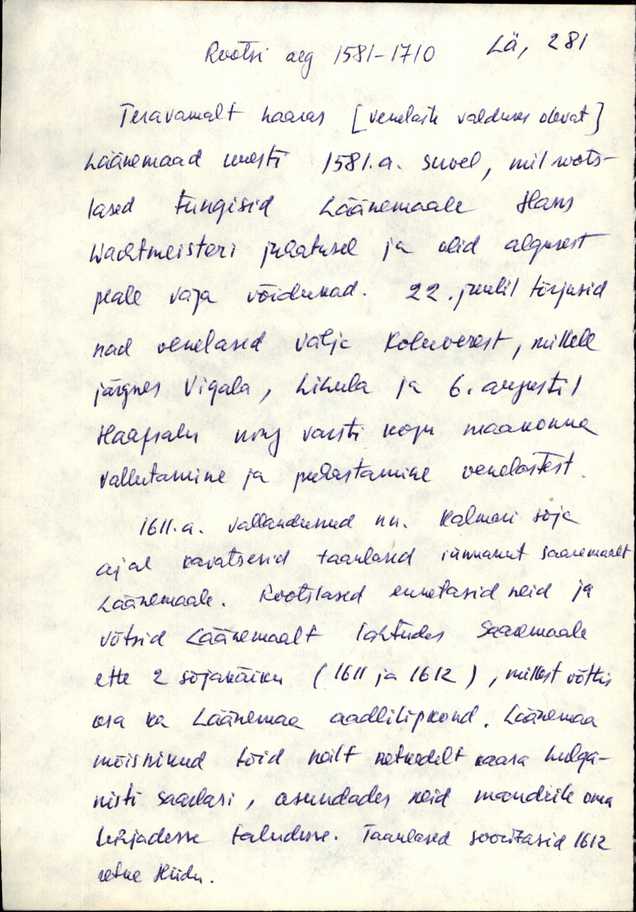 Rootsi aeg 1581-1710 Lä, 281
Teravamalt haaras [venelaste valduses olevat]
Läänemaad uuesti 1581.a. suvel, mil roots-
lased tungisid Läänemaale Hans
Wachtmeisteri juhatusel ja olid algusest
peale väga võidukad. 22. juulil tõrjusid
nad venelased välja Koluverest, millele
järgnes Vigala, Lihula ja 6. augustil
Haapsalu ning varsti kogu maakonna
vallutamine ja puhastamine venelastest.
1611.a. vallandunud nn. Kalmari sõja
ajal kavatsesid taanlased rünnakut Saaremaalt
Läänemaale. Rootslased ennetasid neid ja
võtsid Läänemaalt lähtudes Saaremaale
ette 2 sõjakäiku (1611 ja 1612), millest võttis
osa ka Läänemaa aadlilipkond. Läänemaa
mõisnikud tõid neilt retkedelt kaasa hulga-
nisti saarlasi, asundades neid mandrile oma
tühjadesse taludesse. Taanlased sooritasid 1612
retke Hiidu.